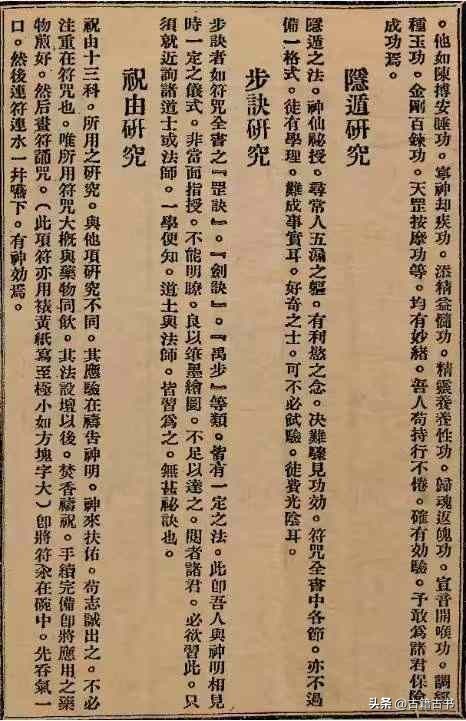 。他如陳搏安睡功。寧神却疾功。添精益髓功。精靈養養性功。歸魂返魄功。宣音開喉功。調經
種玉功。金剛百鍊功。天罡按摩功等。均有妙緒。吾人苟持行不惓。確有効驗。予敢爲諸君保險
成功焉。
隱遁硏究
隱遁之法。神仙秘授。尋常人五漏之軀。有利慾之念。决難驟見功効。符咒全書中各節。亦不過
備一格式。徒有學理。難成事實耳。好奇之士。可不必試驗。徒費光陰耳。
步訣硏究
步訣者如符咒全書之『罡訣』。『劍訣』。『禹步』等類。皆有一定之法。此卽吾人與神明相見
時一定之儀式。非當面指授。不能明瞭。良以筆墨繪圖。不足以達之。閱者諸君。必欲習此。只
須就近詢諸道士或法師。一學便知。道士與法師。皆習爲之。無甚祕訣也。
祝由硏究
祝由十三科。所用之硏究。與他項硏究不同。其應驗在禱吿神明。神來扶佑。苟志誠出之。不必
注重在符咒也。唯所用符咒大槪與藥物同飮。其法設壇以後。焚香禱祝。手續完備卽將應用之藥
物煎好。然后畫符誦咒。（此項符亦用裱黃紙寫至極小如方塊字大）卽將符汆在碗中。先吞氣一
口。然後連符連水一幷嚥下。有神効焉。
头条 @古籍古书